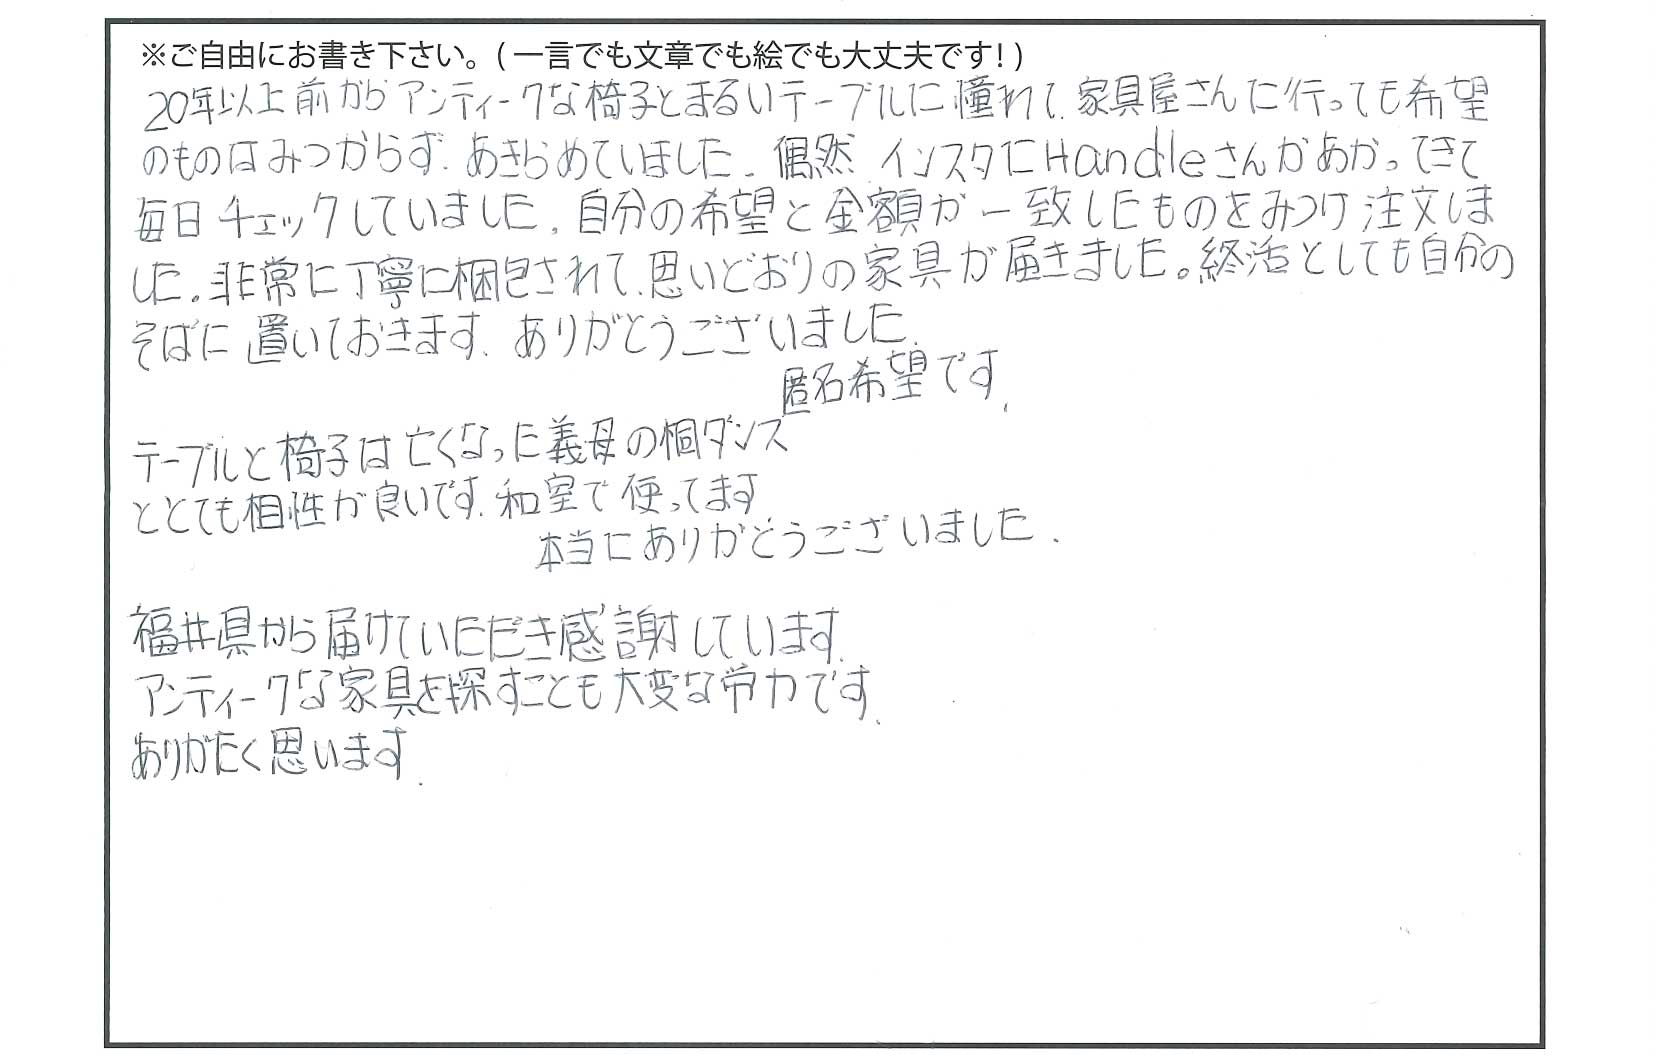 ※ご自由にお書き下さい。(一言でも文章でも絵でも大丈夫です!)
20年以上前からアンティークな椅子とまるいテーブルに憧れて、家具屋さんに行っても希望
のものはみつからず、あきらめていました。偶然、インスタにHandleさんがあがってきて
毎日チェックしていました。自分の希望と金額が一致したものをみつけ注文しま
した。非常に丁寧に梱包されて、思いどおりの家具が届きました。終活としても自分の
そばに置いておきます。ありがとうございました。
匿名希望です。
テーブルと椅子は亡くなった義母の桐ダンス
ととても相性が良いです。和室で使ってます
本当にありがとうございました。
福井県から届けていただき感謝しています。
アンティークな家具を探すことも大変な労力です。
ありがたく思います。